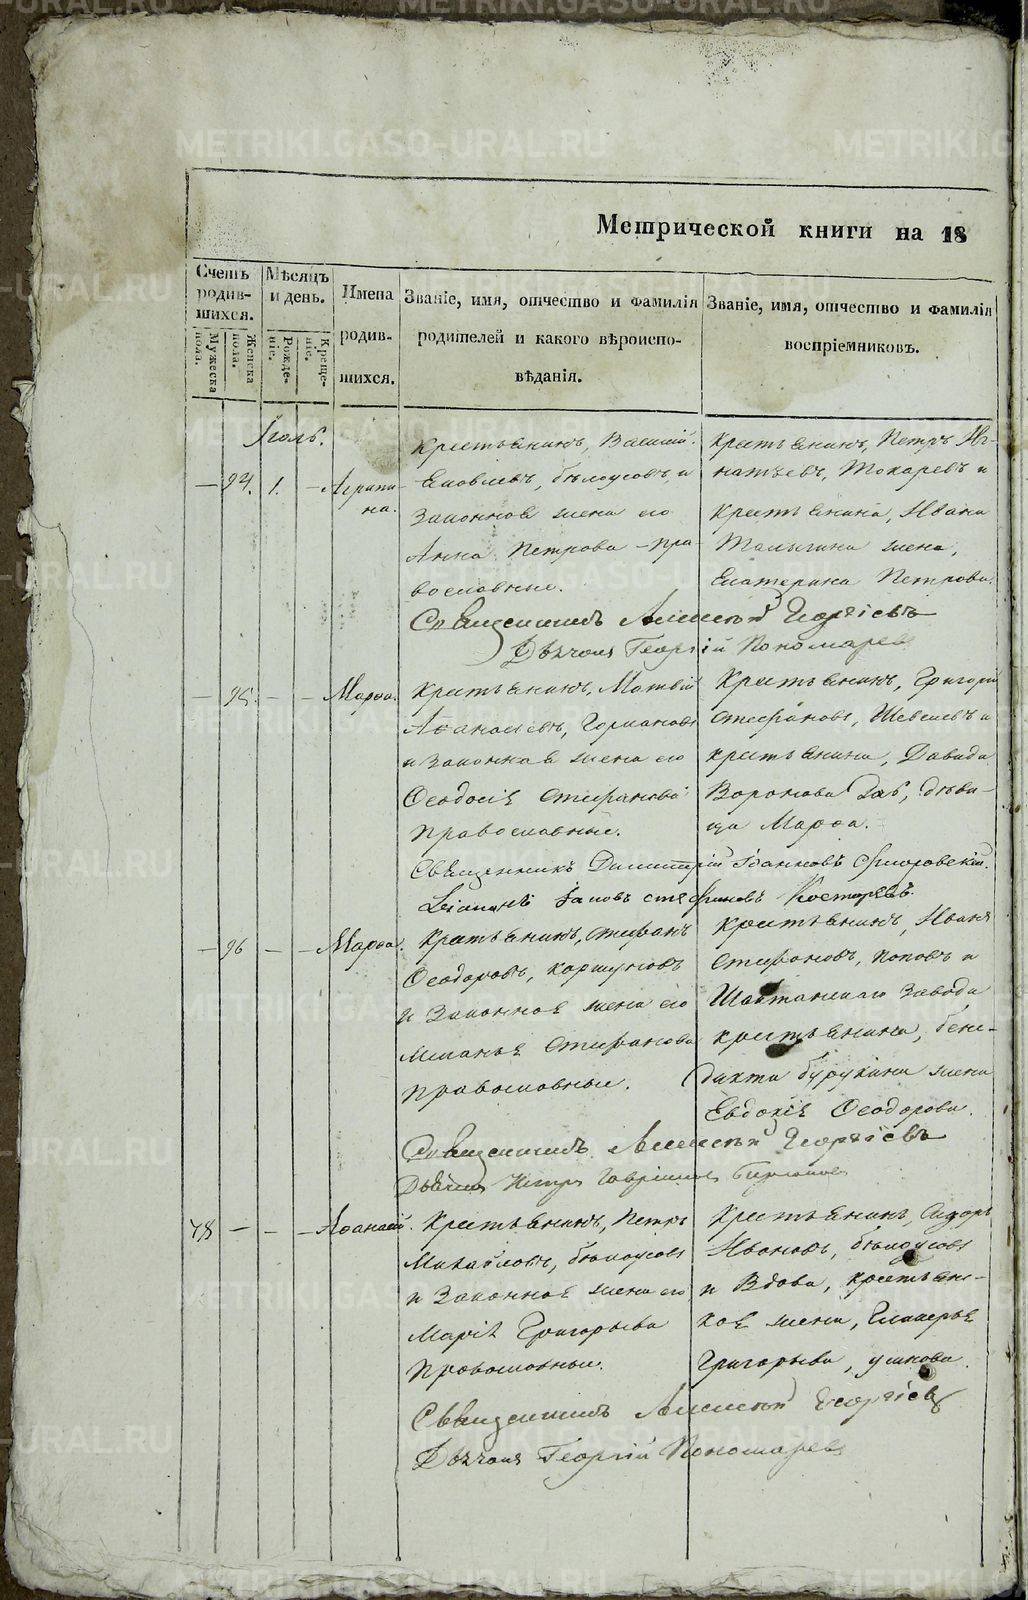 METRIKI.GASO-URAL.RU
Метрической книги на 18
Счетъ родив- шихся.
Мѣсяцъ и день.
Имена родив- шихся.
Званіе, имя, отчество и фамилія родителей и какого вѣроиспо- вѣданія.
Званіе, имя, отчество и фамилія воспріемниковъ.
Мужеска пола.
Женска пола.
Рожде- ніе.
Креще- ніе.
Іюль.
— 94. 1. — Агрипи- на.
Крестьянинъ, Василій
Яковлевъ, бѣлоусовъ и
Законная жена его
Анна Петрова – пра-
вославные.
Крестьянинъ, Петръ Иг-
натьевъ, Токаревъ и
Крестьянина, Ивана
жена,
Екатерина Петрова.
Священникъ Алексѣй Георгіевъ
Дьячокъ Георгій Пономаревъ
— 95. — — Марѳа.
Крестьянинъ, Матвѣй
Аѳанасьевъ,
и Законная жена его
Ѳеодосія Стефанова
Православные.
Крестьянинъ, Григорій
Стефановъ, Шевелевъ и
крестьянина, Давида
Воронова дѣви-
ца Марѳа.
Священникъ Димитрій Іоанновъ
Іаковъ Стефановъ Костаревъ.
— 96 — — Марѳа.
Крестьянинъ, Стефанъ
Ѳеодоровъ, Коршуновъ
и Законная жена его
Меланья Стефанова
Православные.
Крестьянинъ, Иванъ
Стефановъ, Поповъ и
Шайтанскаго Завода
крестьянина, Бене-
дикта Бурукина жена
Евдокія Ѳеодорова.
Священникъ Алексѣй Георгіевъ
Петръ
78 — — — Аѳанасій.
Крестьянинъ, Петръ
Михайловъ, бѣлоусовъ
и Законная жена его
Марія Григорьева
Православные.
Крестьянинъ, Сидоръ
Ивановъ, бѣлоусовъ
и Вдова, крестьян-
кая жена, Гликерья
Григорьева, ушкова.
Священникъ Алексѣй Георгіевъ
Дьячокъ Георгій Пономаревъ